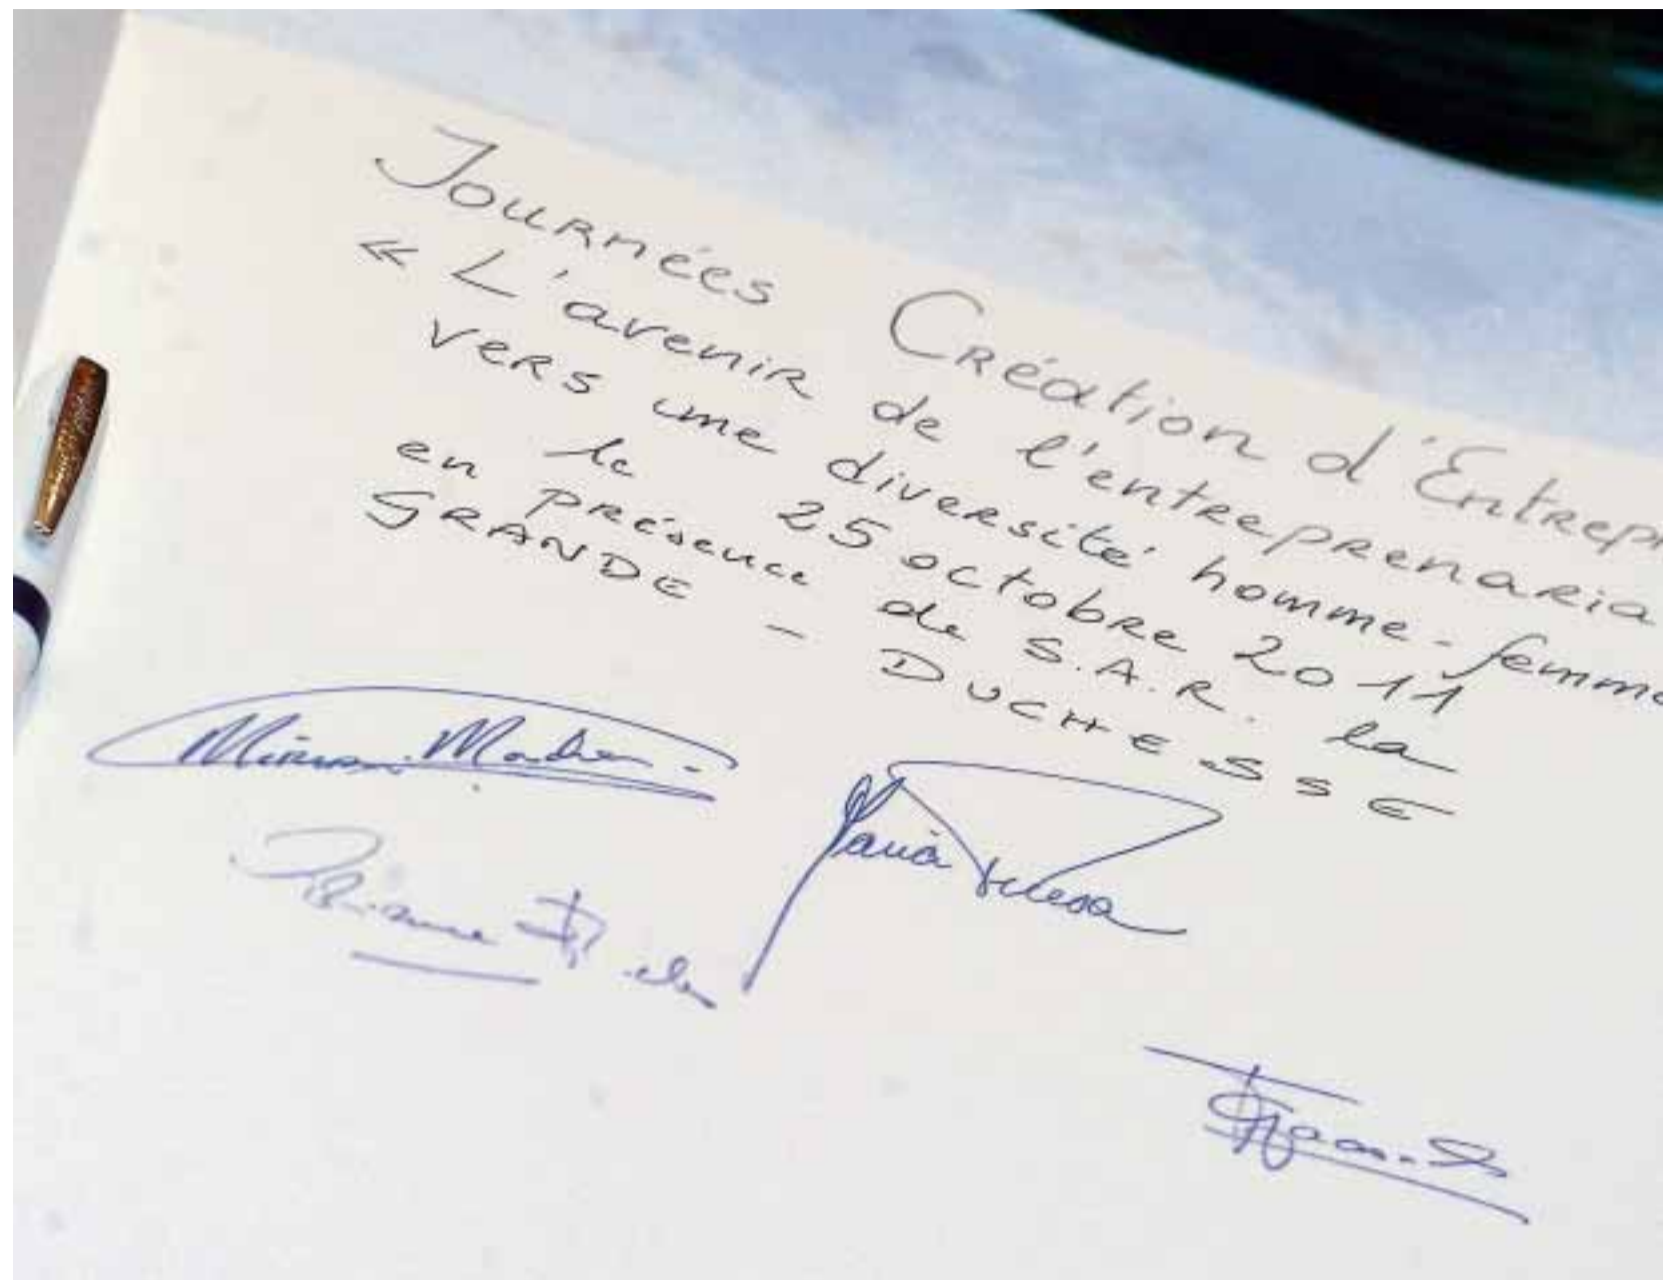 Journées Création d'Entrepr
« L'avenir de l'entreprenaria
vers une diversité homme-femme
le 25 octobre 2011
en présence de S.A.R. la
GRANDE - DUCHESSE
Maria Teresa